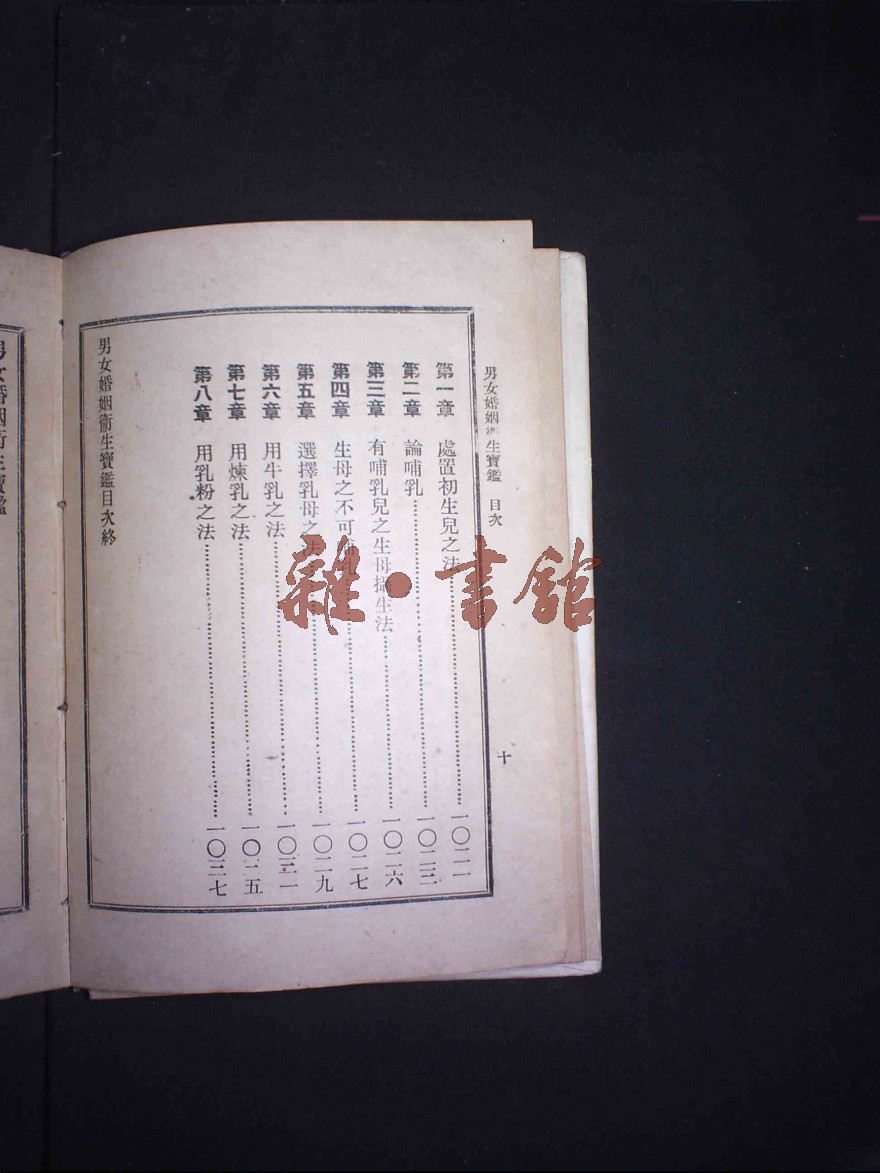 男女婚姻衞生寶鑑 目次
十
第一章 處置初生兒之法 一〇二一
第二章 論哺乳 一〇二三
第三章 有哺乳兒之生母攝生法 一〇二六
第四章 生母之不可哺乳 一〇二七
第五章 選擇乳母之法 一〇二九
第六章 用牛乳之法 一〇三一
第七章 用煉乳之法 一〇三五
第八章 用乳粉之法 一〇三七
男女婚姻衞生寶鑑目次終
男女婚姻衞生寶鑑
雜·書館